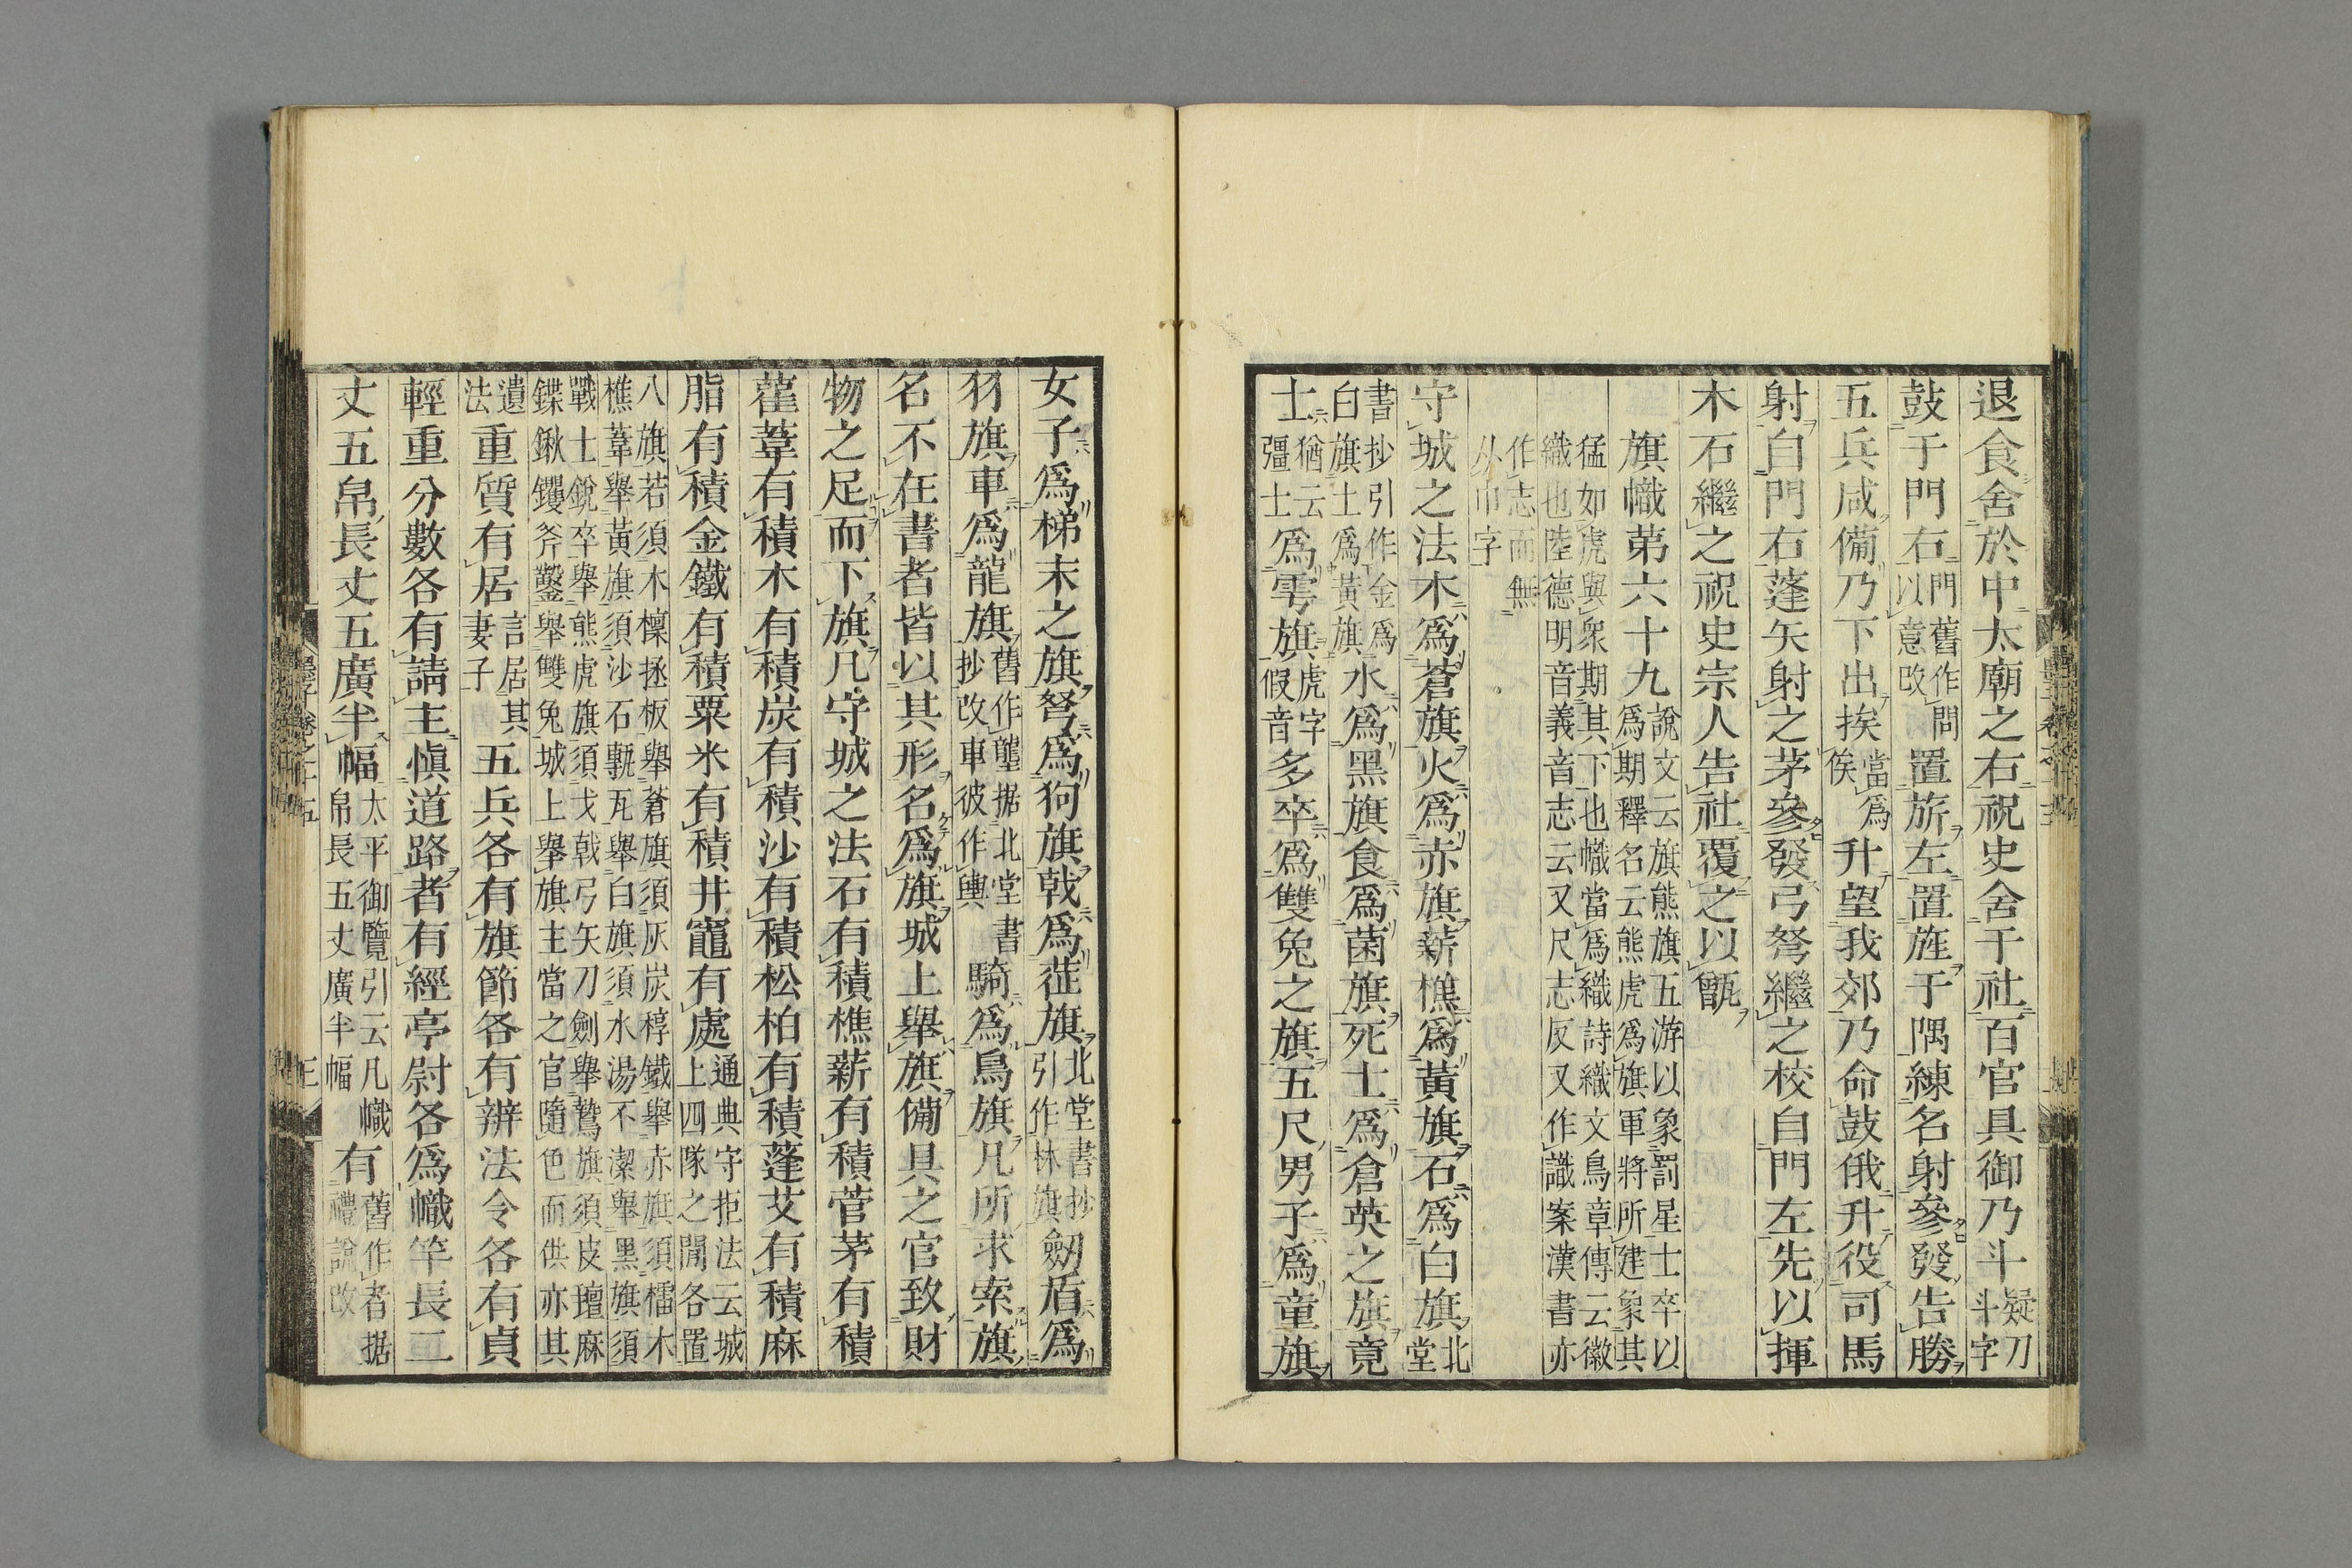 退食舍於中太廟之右祝史舍于社百官具御乃斗疑刀斗字
鼓于門右門舊作問以意改置旂左置旌于隅練名射參發告勝
五兵咸備乃下出挨當爲俟升望我郊乃命鼓俄升役司馬
射自門右蓬矢射之茅參發弓弩繼之校自門左先以揮
木石繼之祝史宗人告社覆之以甑
旗幟第六十九說文云旗熊旗五游以象罰星士卒以爲期釋名云熊虎爲旗軍將所建象其
猛如虎與衆期其下也幟當爲織詩織文鳥章傳云徽
織也陸德明音義音志云又尺志反又作識案漢書亦
作志而無
从巾字
守城之法木爲蒼旗火爲赤旗薪樵爲黃旗石爲白旗北堂
書抄引作金爲白旗土爲黃旗水爲黑旗食爲菌旗死士爲倉英之旗竟
士猶云彊士爲雩旗虎字假音多卒爲雙兔之旗五尺男子爲童旗
女子爲梯末之旗弩爲狗旗戟爲𦯬旗北堂書抄引作林旗劒盾爲
羽旗車爲龍旗舊作壟据北堂書抄改車彼作輿騎爲鳥旗凡所求索旗
名不在書者皆以其形名爲旗城上舉旗備具之官致財
物之足而下旗凡守城之法石有積樵薪有積菅茅有積
雚葦有積木有積炭有積沙有積松柏有積蓬艾有積麻
脂有積金鐵有積粟米有積井竈有處通典守拒法云城上四隊之閒各置
八旗若須木檁拯板舉蒼旗須灰炭稕鐵舉赤旗須檑木
樵葦舉黃旗須沙石甎瓦舉白旗須水湯不潔舉黑旗須
戰士銳卒舉熊虎旗須戈戟弓矢刀劍舉鷙旗須皮氊麻
鍱鍬钁斧鑿舉雙兔城上舉旗主當之官隨色而供亦其
遺法重質有居言居其妻子五兵各有旗節各有辨法令各有貞
輕重分數各有請主慎道路者有經亭尉各爲幟竿長二
丈五帛長丈五廣半幅太平御覽引云凡幟帛長五丈廣半幅有舊作者据禮說改
墨子卷之十五
三